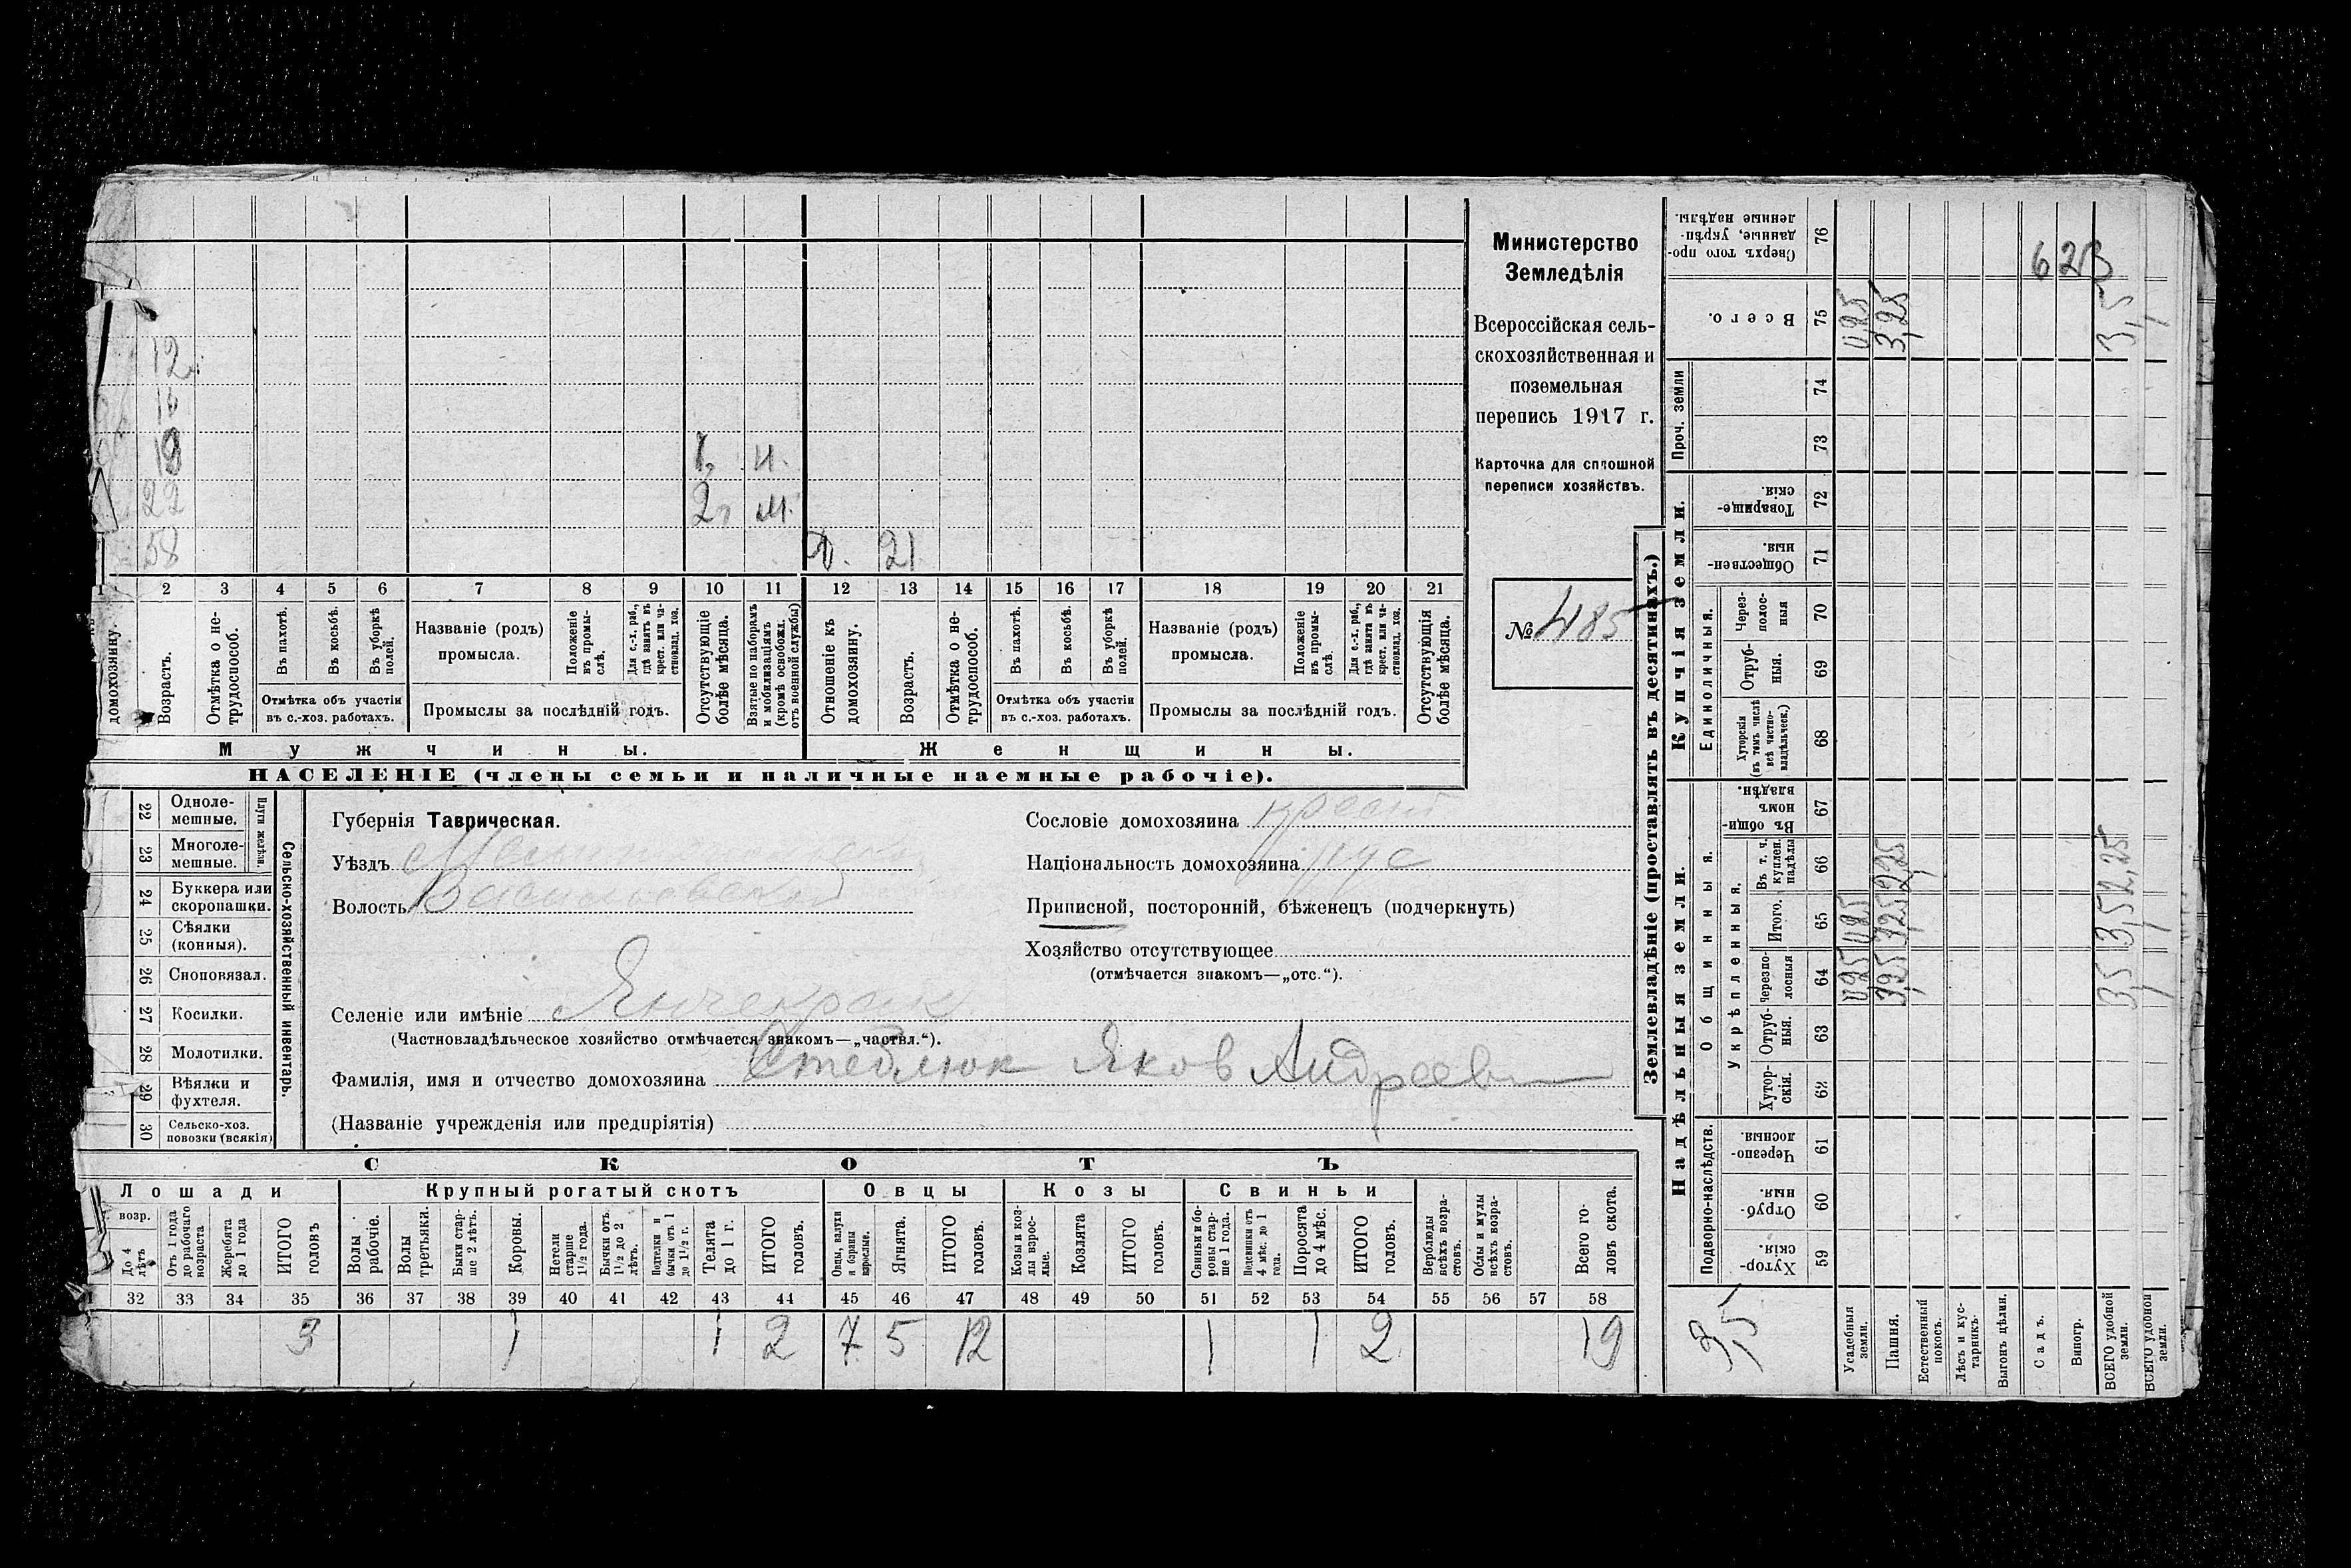 Министерство
Земледѣлія
Всероссійская сель-
скохозяйственная и
поземельная
перепись 1917 г.
Карточка для сплошной
переписи хозяйствъ.
№ 485
12
18
22
58
1 2 3 4 5 6 7 8 9 10 11 12 13 14 15 16 17 18 19 20 21
2 м.
21
домохозяину.
Возрастъ.
Отмѣтка о не-
трудоспособ.
Въ пахотѣ.
Въ косьбѣ.
Въ уборкѣ
полей.
Отмѣтка объ участіи
въ с.-хоз. работахъ.
Названіе (родъ)
промысла.
Положеніе
въ промы-
слѣ.
Для с.-х. раб.,
гдѣ занятъ въ
крест. или ча-
ствовлад. хоз.
Промыслы за послѣдній годъ.
Отсутствующіе
болѣе мѣсяца.
Взятые по наборамъ
и мобилизаціямъ
(кромѣ освобожд.
отъ военной службы)
Отношеніе къ
домохозяину.
Возрастъ.
Отмѣтка о не-
трудоспособ.
Въ пахотѣ.
Въ косьбѣ.
Въ уборкѣ
полей.
Отмѣтка объ участіи
въ с.-хоз. работахъ.
Названіе (родъ)
промысла.
Положеніе
въ промы-
слѣ.
Для с.-х. раб.,
гдѣ занята въ
крест. или ча-
ствовлад. хоз.
Промыслы за послѣдній годъ.
Отсутствующія
болѣе мѣсяца.
Мужчины.
Женщины.
НАСЕЛЕНІЕ (члены семьи и наличные наемные рабочіе).
22 Одноле-
мешные.
23 Многоле-
мешные.
Плуги желѣзн.
24 Буккера или
скоропашки.
25 Сѣялки
(конныя).
26 Сноповязал.
27 Косилки.
28 Молотилки.
29 Вѣялки и
фухтеля.
30 Сельско-хоз.
повозки (всякія)
Сельско-хозяйственный инвентарь.
Губернія Таврическая.
Уѣздъ
Волость Васильевская
Сословіе домохозяина крест
Національность домохозяина рус
Приписной, посторонній, бѣженецъ (подчеркнуть)
Хозяйство отсутствующее
(отмѣчается знакомъ—„отс.“).
Селеніе или имѣніе Янчекрак
(Частновладѣльческое хозяйство отмѣчается знакомъ—„частвл.“).
Фамилія, имя и отчество домохозяина Стеблюк Яков Андреев
(Названіе учрежденія или предпріятія)
СКОТЪ
Лошади
Крупный рогатый скотъ
Овцы
Козы
Свиньи
возр.
До 4
лѣтъ
Отъ 1 года
до рабочаго
возраста
Жеребята
до 1 года
ИТОГО
головъ
Волы
рабочіе.
Волы
третьяки.
Быки стар-
ше 2 лѣтъ.
Коровы.
Нетели
старше
1½ года.
Бычки отъ
1½ до 2
лѣтъ.
Подтелки и
бычки отъ 1
до 1½ г.
Телята
до 1 г.
ИТОГО
головъ.
Овцы, валухи
и бараны
взрослые.
Ягнята.
ИТОГО
головъ.
Козы и коз-
лы взрос-
лые.
Козлята
ИТОГО
головъ.
Свиньи и бо-
ровы стар-
ше 1 года.
Подсвинки отъ
4 мѣс. до 1
года.
Поросята
до 4 мѣс.
ИТОГО
головъ.
Верблюды
всѣхъ возра-
стовъ.
Ослы и мулы
всѣхъ возра-
стовъ.
Всего го-
ловъ скота.
32 33 34 35 36 37 38 39 40 41 42 43 44 45 46 47 48 49 50 51 52 53 54 55 56 57 58
3 1 1 2 7 5 12 1 1 2 19
Землевладѣніе (проставлять въ десятинахъ.)
Купчія земли.
Надѣльныя земли.
Сверхъ того про-
данные, укрѣп-
ленные надѣлы.
76
623
Всего.
75
3,25
3,5
Проч. земли
74
73
Товарище-
скія.
72
Обществен-
ныя.
71
Единоличныя.
Через-
полос-
ныя
70
Отруб-
ныя.
69
Хуторскія
(въ томъ числѣ
всѣ частно-
владѣльческ.)
68
Общинныя.
Въ общи-
номъ
владѣн.
67
Укрѣпленныя.
Въ т. ч.
куплен.
надѣлы
66
2,25
2,25
Итого.
65
3,25
3,5
Черезпо-
лосныя
64
3,25
3,5
Отруб-
ныя.
63
Хутор-
скія.
62
Подворно-наслѣдств.
Черезпо-
лосныя.
61
Отруб-
ныя.
60
Хутор-
скія.
59
3,5
Усадебныя
земли.
Пашня.
Естественный
покосъ.
Лѣсъ и кус-
тарникъ.
Выгонъ цѣлин.
Садъ.
Виногр.
ВСЕГО удобной
земли.
ВСЕГО удобной
земли.